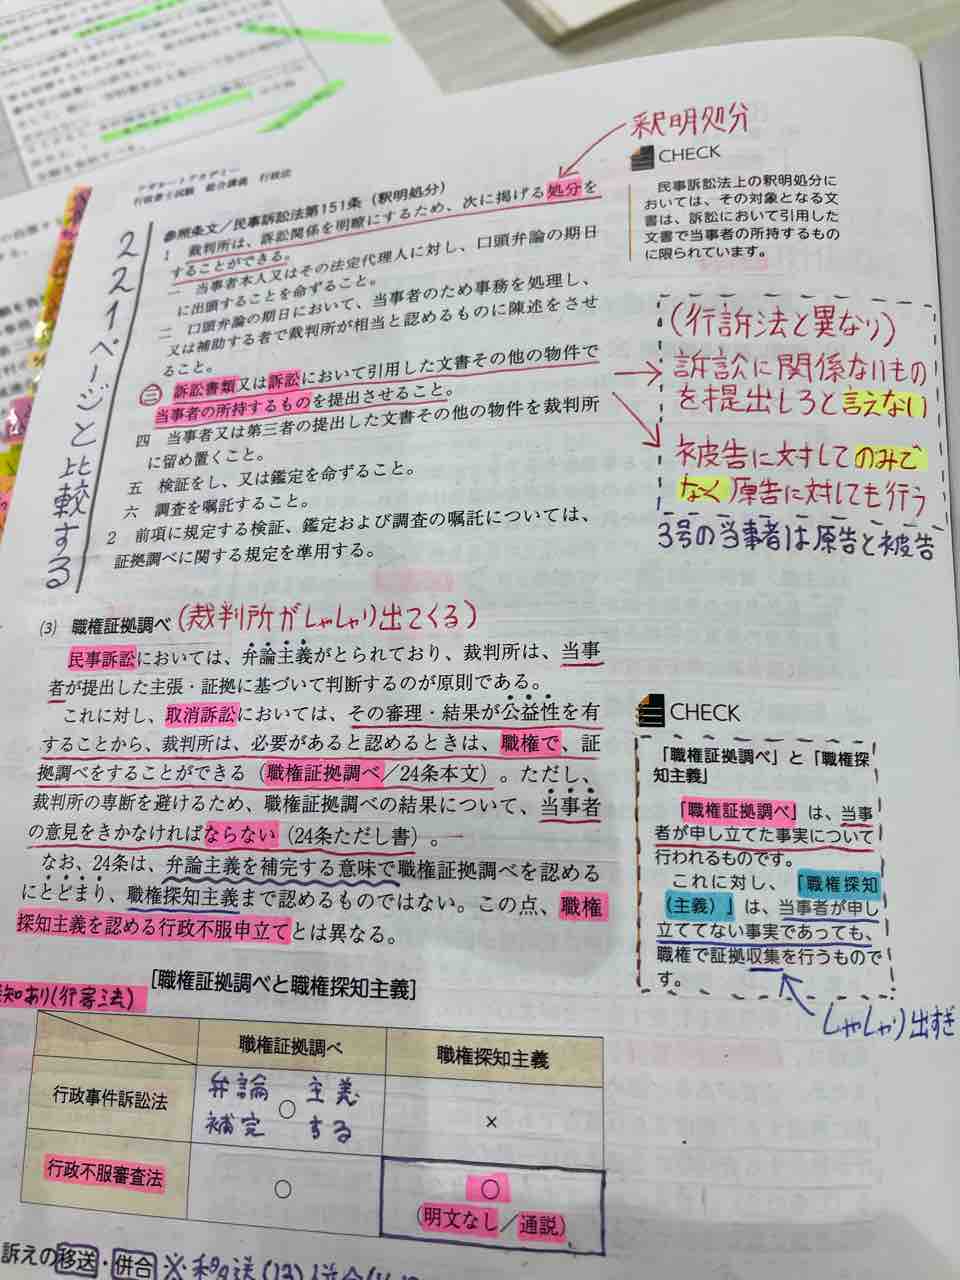 アガルートアカデミー
行政書士試験　総合講義　行政法
釈明処分
CHECK
民事訴訟法上の釈明処分に
おいては、その対象となる文
書は、訴訟において引用した
文書で当事者の所持するもの
に限られています。
221ページと比較する
参照条文／民事訴訟法第151条（釈明処分）
1　裁判所は、訴訟関係を明瞭にするため、次に掲げる処分を
することができる。
一　当事者本人又はその法定代理人に対し、口頭弁論の期日
に出頭することを命ずること。
二　口頭弁論の期日において、当事者のため事務を処理し、
又は補助する者で裁判所が相当と認めるものに陳述をさせ
ること。
三　訴訟書類又は訴訟において引用した文書その他の物件で
当事者の所持するものを提出させること。
四　当事者又は第三者の提出した文書その他の物件を裁判所
に留め置くこと。
五　検証をし、又は鑑定を命ずること。
六　調査を嘱託すること。
2　前項に規定する検証、鑑定および調査の嘱託については、
証拠調べに関する規定を準用する。
（行訴法と異なり）
訴訟に関係ないもの
を提出しろと言えない
被告に対してのみで
なく原告に対しても行う
3号の当事者は原告と被告
(3)　職権証拠調べ（裁判所がしゃしゃり出てくる）
民事訴訟においては、弁論主義がとられており、裁判所は、当事
者が提出した主張・証拠に基づいて判断するのが原則である。
これに対し、取消訴訟においては、その審理・結果が公益性を有
することから、裁判所は、必要があると認めるときは、職権で、証
拠調べをすることができる（職権証拠調べ／24条本文）。ただし、
裁判所の専断を避けるため、職権証拠調べの結果について、当事者
の意見をきかなければならない（24条ただし書）。
なお、24条は、弁論主義を補完する意味で職権証拠調べを認める
にとどまり、職権探知主義まで認めるものではない。この点、職権
探知主義を認める行政不服申立てとは異なる。
CHECK
「職権証拠調べ」と「職権探
知主義」
「職権証拠調べ」は、当事
者が申し立てた事実について
行われるものです。
これに対し、「職権探知
（主義）」は、当事者が申し
立ててない事実であっても、
職権で証拠収集を行うもので
す。
しゃしゃり出すぎ
知あり(行審法)
［職権証拠調べと職権探知主義］
職権証拠調べ　職権探知主義
行政事件訴訟法　○　×
弁論主義
補完する
行政不服審査法　○　○
（明文なし／通説）
訴えの移送・併合 ※移送(13)併合